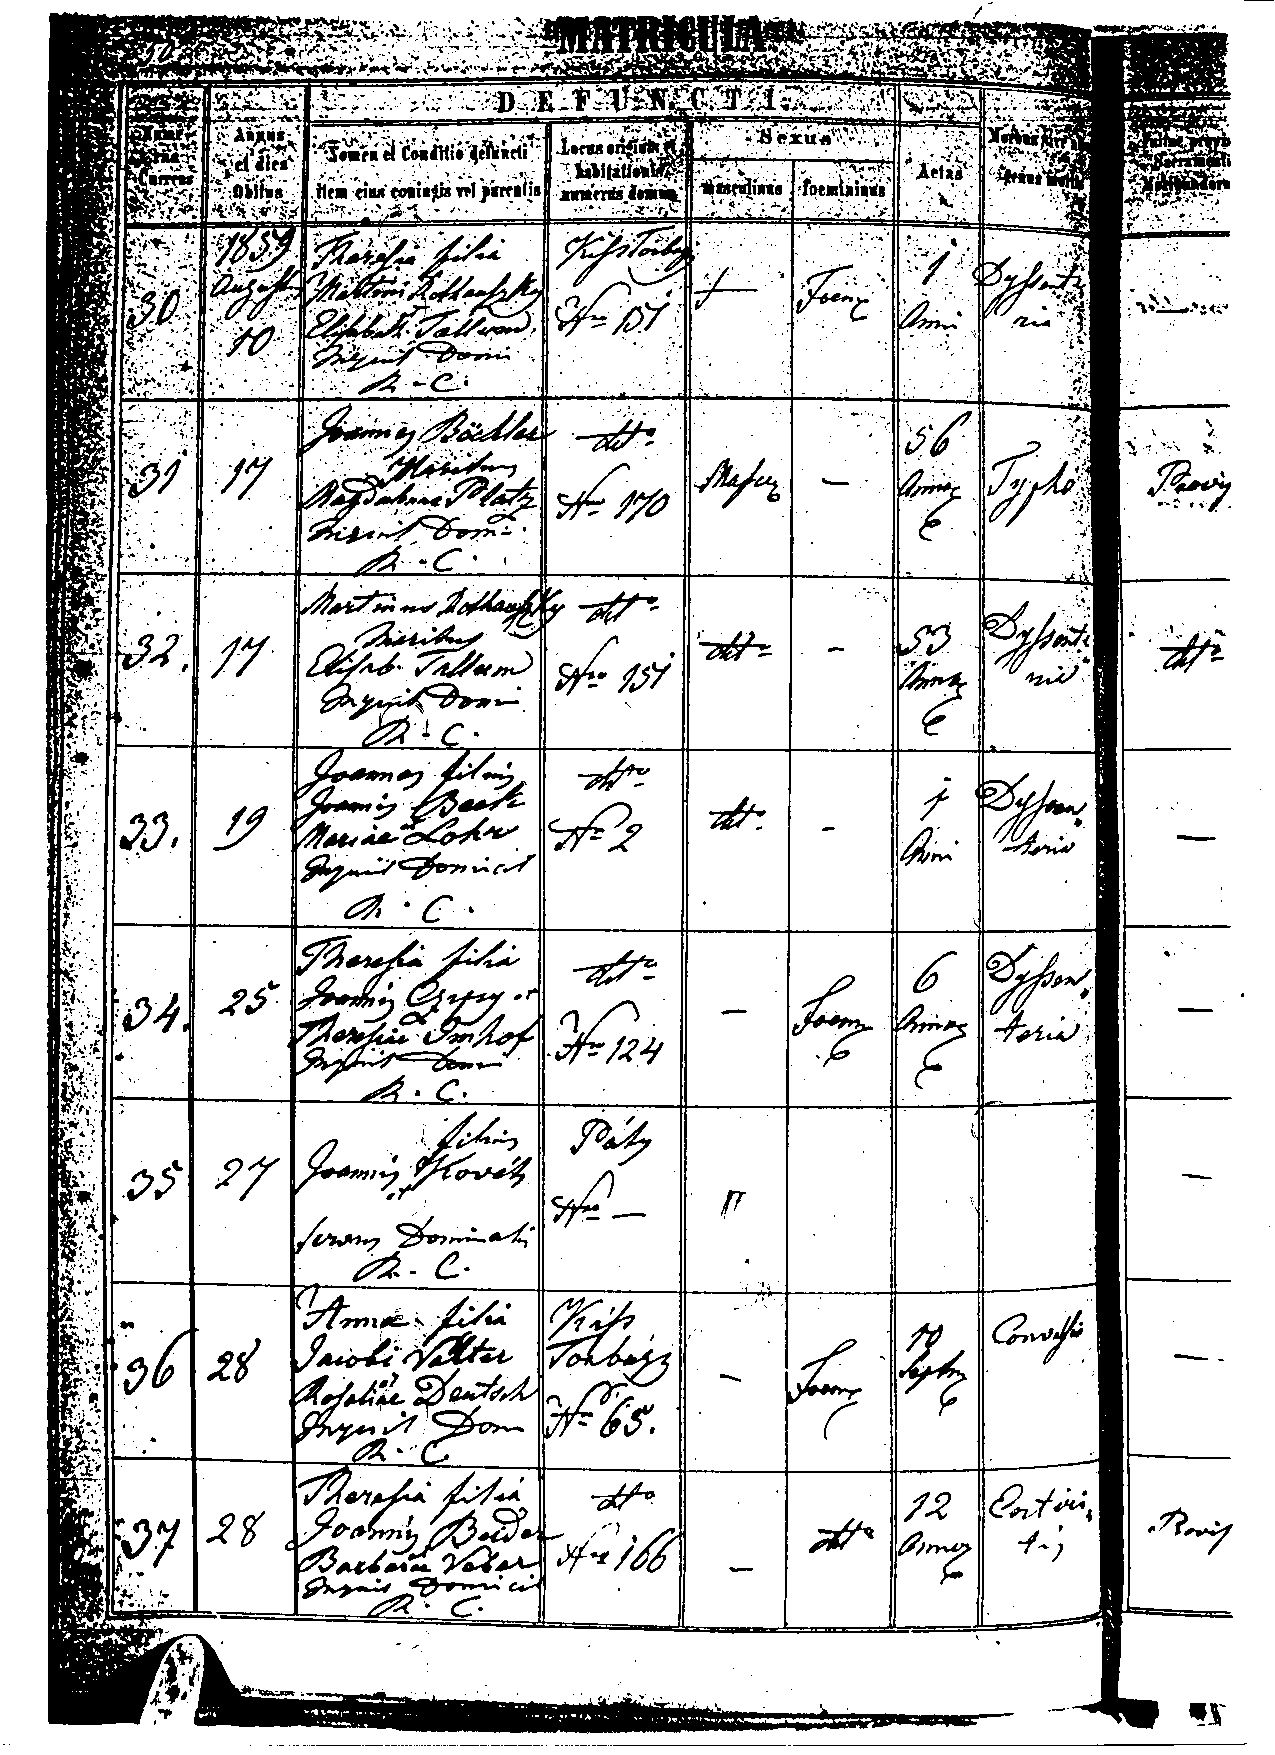 MATRICULA
DEFUNCTI
Numerus Currens
Annus et dies Obitus
Nomen et Conditio defuncti
item eius coniugis vel parentis
Locus originis et habitationis, numerus domus
Sexus
masculinus
foemininus
Aetas
30
1859
August
10
Theresia filia
Martini Rothaufzky
Elisabeth
Inquil Domi
R. C.
Kiss Torbágy
Nro 151
Foem
1
Anni
Dyssenteria
31
17
Joannes Bechler
Maritus
Magdalena Platz
Inquil Domi
R. C.
dtto
Nro 170
Mascu
—
56
Annor
Typho
Provis
32.
17
Martinus Rothaufzky
Maritus
Elisab.
Inquil Domi
R. C.
dtto
Nro 151
dtto
—
53
Annor
Dyssenteria
dtto
33.
19
Joannes filius
Joannis Beck
et
Mariae Lohr
Inquil Domicil
R. C.
dtto
Nro 2
dtto
—
1
Anni
Dyssenteria
—
34.
25
Theresia filia
Joannis et
Theresiae Imhof
Inquil Domi
R. C.
dtto
Nro 124
—
Foem
6
Annor
Dyssenteria
—
35
27
filius
Joannis Kováts
et
Dominalis
R. C.
Páty
Nro —
"
—
36
28
Anna filia
Jacobi Valter
et
Rosaliae Deutsch
Inquil Dom
R. C.
Kiss
Torbágy
Nro 65.
—
Foem
10
Septim
—
37
28
Theresia filia
Joannis
Barbarae Veber
Inquil Domicil
R. C.
dtto
Nro 166
—
dtto
12
Annor
Provis